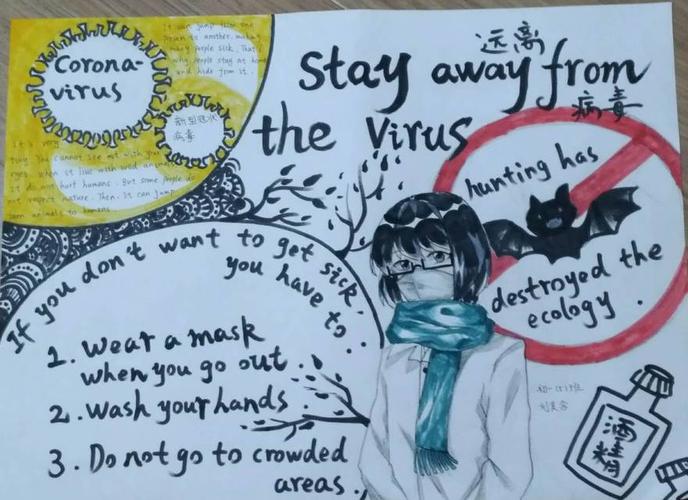 Corona-
virus
It can jump from one
person to another, making
many people sick. That's
why people stay at home
and hide from it.
新型冠状
病毒
It's very
tiny. You cannot see it with your
eyes. when it live with wild animals
It do not hurt humans. But some people do
not respect nature. Then. It can jump
from animals to humans.
远离
Stay away from
病毒
the Virus
hunting has
destroyed the
ecology.
If you don't want to get sick,
you have to..
1. Wear a mask
when you go out.
2. Wash your hands.
3. Do not go to crowded
areas.
酒精